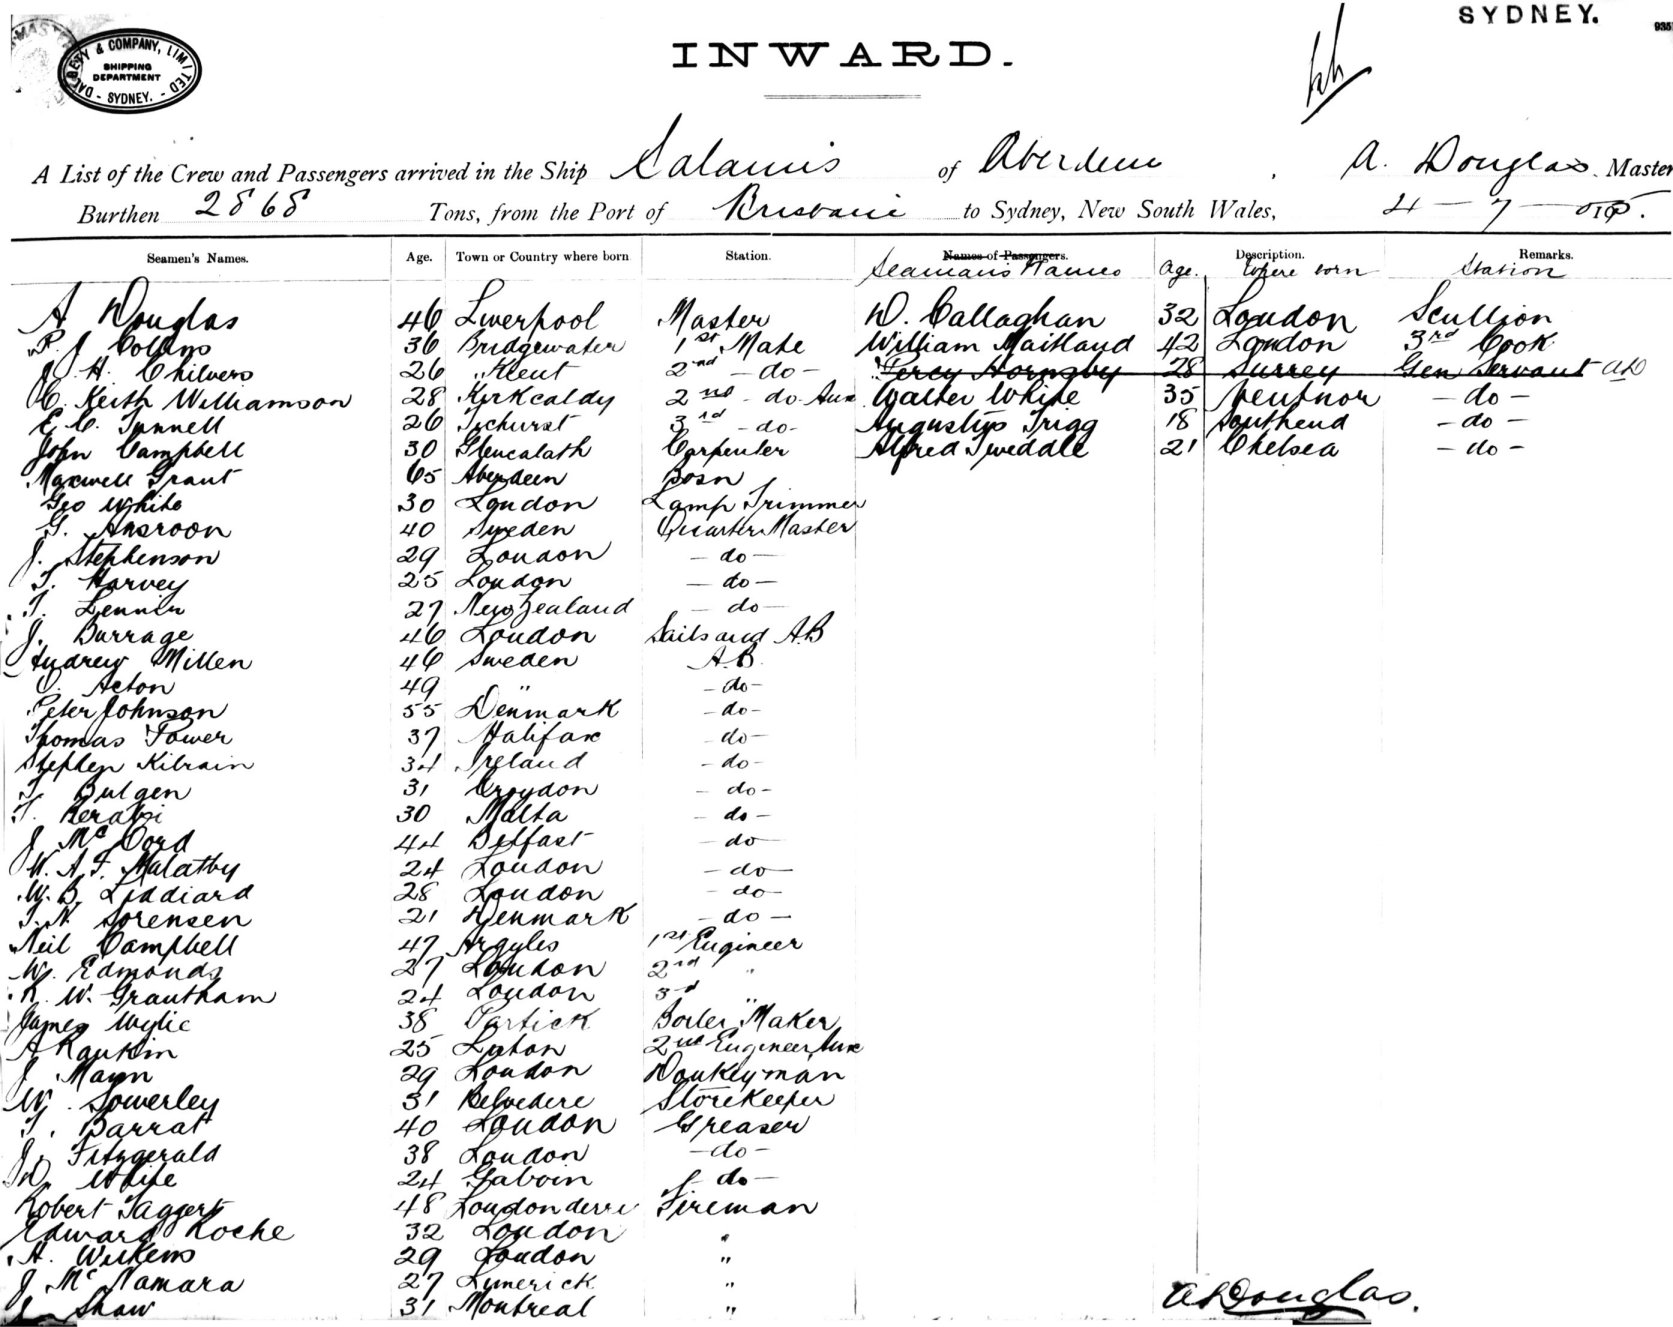 SYDNEY.
935
DALGETY & COMPANY, LIMITED
SHIPPING
DEPARTMENT
- SYDNEY. -
INWARD.
A List of the Crew and Passengers arrived in the Ship Salamis of Aberdeen, A. Douglas. Master
Burthen 2868 Tons, from the Port of Brisbane to Sydney, New South Wales, 4-7-
Seamen's Names. Age. Town or Country where born Station. Names of Passengers. Description. Remarks.
Seaman's Names Age. Where born Station
A Douglas 46 Liverpool Master D. Callaghan 32 London Scullion
P. J Collins 36 Bridgewater 1st Mate William Maitland 42 London 3rd Cook
J. H. Chilvers 26 Kent 2nd - do - Percy Hornsby 28 Surrey Gen Servant AD
C. Keith Williamson 28 Kirkcaldy 2nd - do Aux Walter White 35 Ventnor - do -
E. C. Tunnell 26 Ticehurst 3rd - do - Augustus Trigg 18 Southend - do -
John Campbell 30 Glencalath Carpenter Alfred Tweddle 21 Chelsea - do -
Maxwell Grant 65 Aberdeen Bosn
Geo White 30 London Lamp Trimmer
G. Ansroon 40 Sweden Quarter Master
J. Stephenson 29 London - do -
T. Harvey 25 London - do -
T. Lennin 27 New Zealand - do -
J. Burrage 46 London Sails and A.B
Andrew Millen 46 Sweden A.B.
C. Acton 49 " - do -
Peter Johnson 55 Denmark - do -
Thomas Power 37 Halifax - do -
Stephen Kilrain 34 Ireland - do -
T. Bulgen 31 Croydon - do -
T. 30 Malta - do -
J McCord 44 Belfast - do
W. A. F. Malatby 24 London - do -
W. B. Liddiard 28 London - do -
T. N. Sorensen 21 Denmark - do -
Neil Campbell 47 Argyles 1st Engineer
W. Edmonds 27 London 2nd "
R. W. Grantham 24 London 3rd "
James Wylie 38 Partick Boiler Maker
A Rankin 25 Luton 2nd Engineer Aux
J Mann 29 London Donkeyman
W. Sowerley 31 Belvedere Storekeeper
T. Barrat 40 London Greaser
J. Fitzgerald 38 London - do -
D. White 24 - do -
Robert Taggert 48 Londonderri Fireman
Edward Roche 32 London "
A. Wilkens 29 London "
J McNamara 27 Limerick "
J Shaw 31 Montreal "
A Douglas.